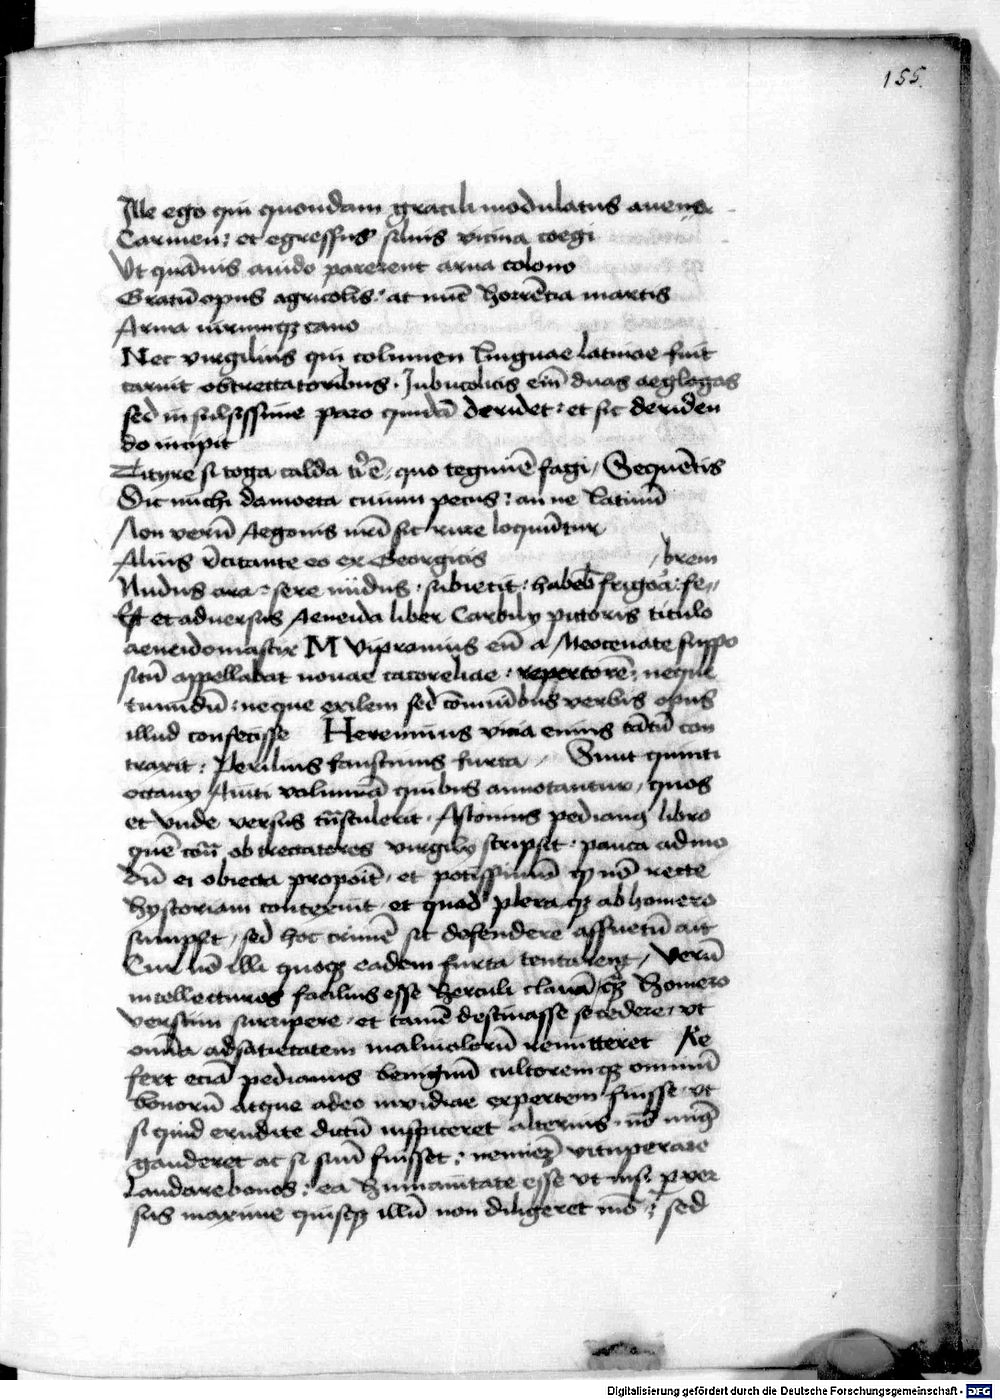 155.
Ille ego qui quondam gracili modulatus avena
Carmen: et egressus siluis vicina coegi
Vt quāuis auido parerent arua colono
Gratū opus agricolis: at nūc horrētia martis
Arma uirumqꝫ cano
Nec virgilius qui columen linguae latinae fuit
caruit obtrectatoribus. Jn bucolicis eīn duas aeglogas
sed insulsissime paro quidā deridet: et sic deriden
do incipit
Tityre si toga calda t̄ ē, quo tegminē fagi, Sequētis
Dic michi damoeta cuium pecus: an ne latinū
Non verū Aegonis nr̄i sic rure loquūtur
Alius rēcitante eo ex Georgicis
/ brem
Nudus ara: sere nudus. subiecit: habeb frigora: fe„
Est et aduersus Aeneida liber Carbily pictoris titulo
aeneidomastix M Vipranius eū a Moecenate suppo
situ appellabat nouae cacoreliae. repertorē: neque
tumidū: neque exilem sed cōmunibus verbis opus
illud confecisse Herennius vicia enius tātū con
traxit: Perilius faustinus furta, Sunt quinti
octauy Auiti volumīa quibus annotantur, quos
et vnde versus trāstulerit. Asconius pedianꝰ libro
quē cōtr̄ obtrectatores virgily scripsit. pauca admo
dū ei obiecta propoīt, et potissimū qꝫ nō recte
hystoriam contexuit. et quod plera qꝫ ab homero
sumpsit, sed hoc crimē sic defendere assuetū ait
Cur nō illi quoqꝫ eadem furta tentarent, Verū
intellecturos facilius esse Herculi clauā qꝫ Homero
versum surripere. et tamē destinasse secedere, vt
omīa ad satietatem maliuolorū remitteret Re
fert eciā pedianus benignū cultoremqꝫ omniū
bonorū atque adeo inuidiae expertem fuisse. vt
si quid erudite dictū inspiceret alterius. nō minꝰ
gauderet ac si suū fuisset: neminē vituperare
laudare bonos: ea humanitate esse vt nisi peruer
sus maxime quisqꝫ illū non diligeret mō, sed
Digitalisierung gefördert durch die Deutsche Forschungsgemeinschaft - DFG